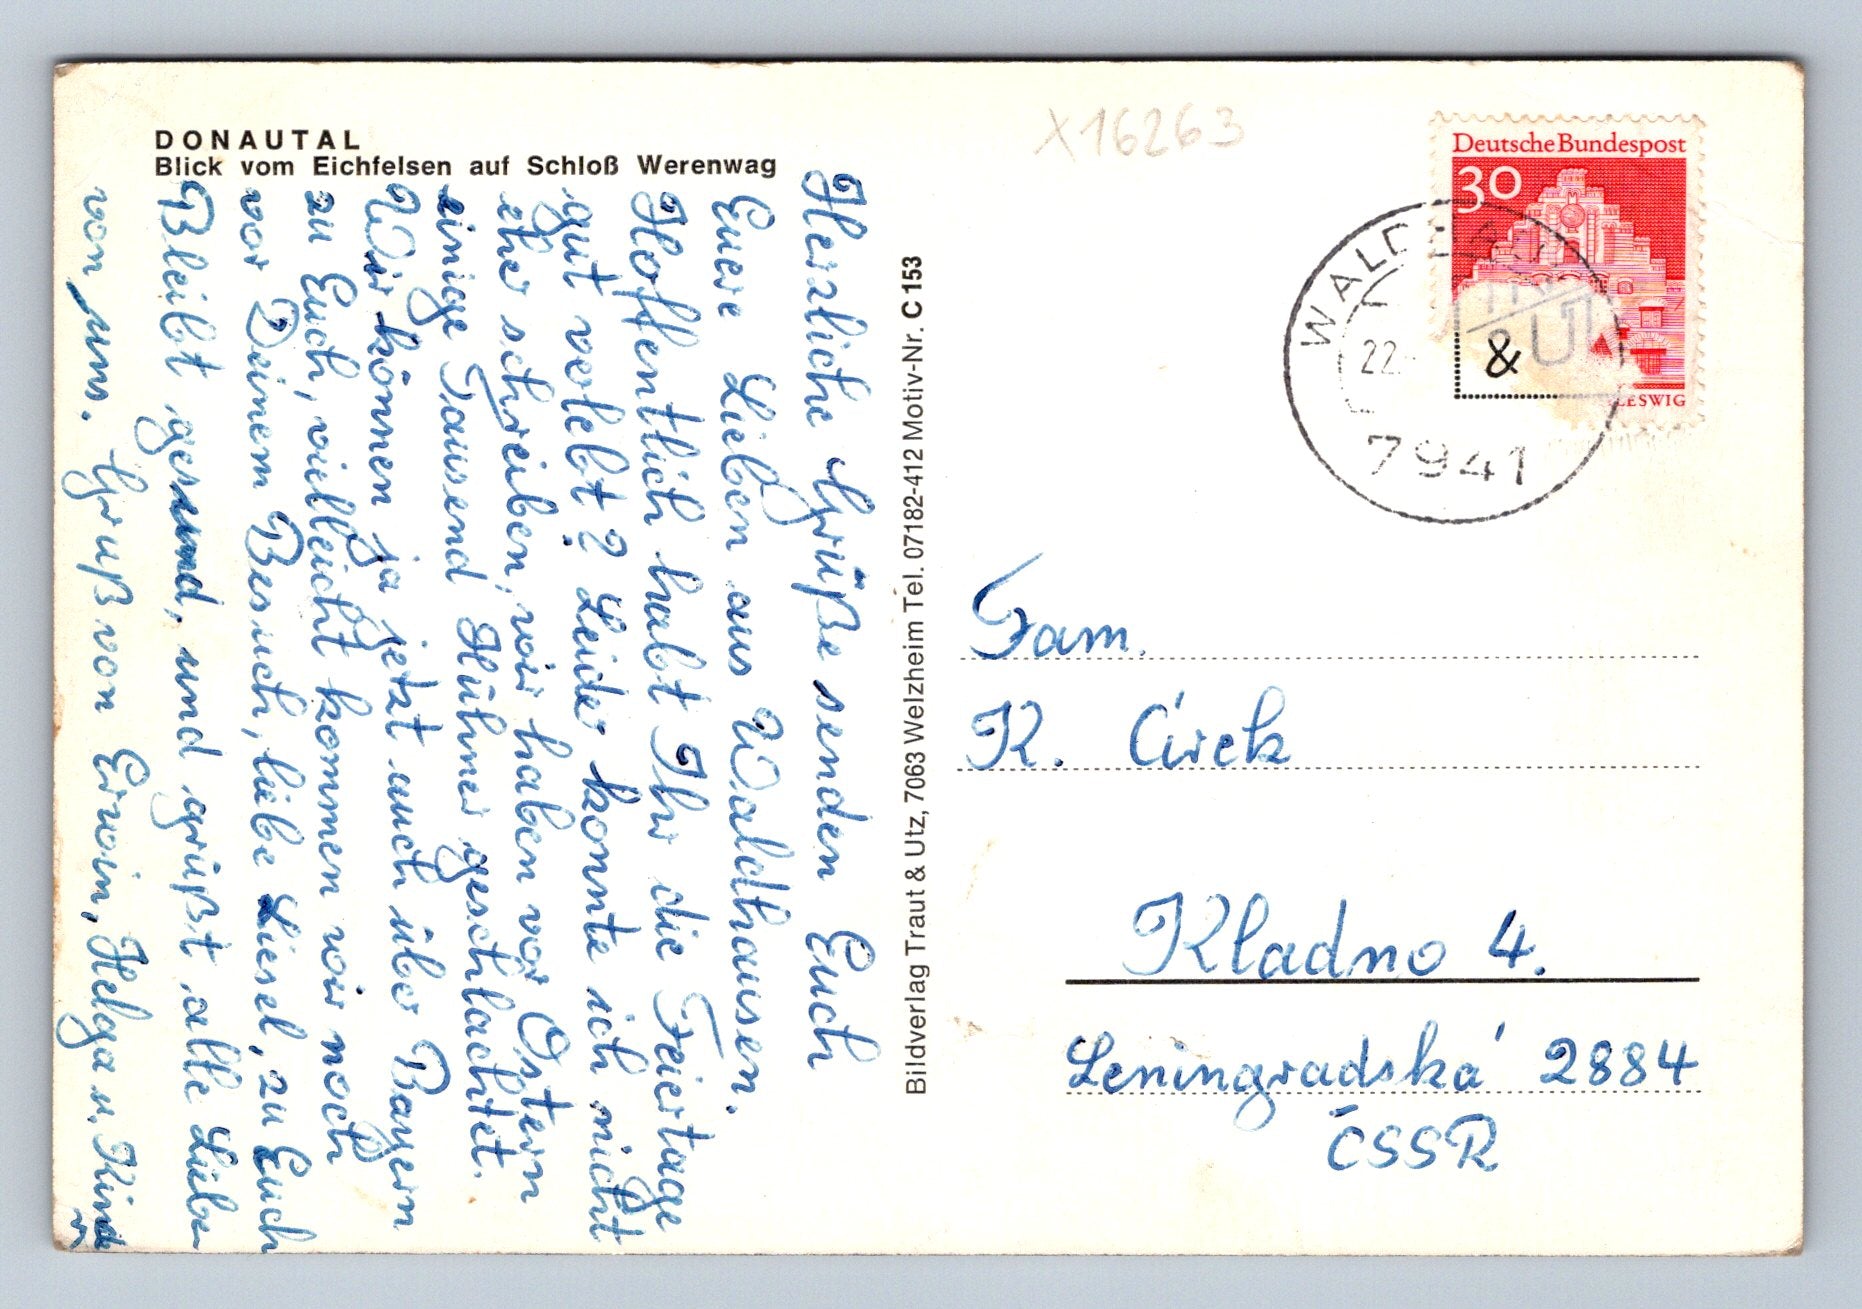 DONAUTAL
Blick vom Eichfelsen auf Schloß Werenwag
Herzliche Grüße senden Euch
Euere Lieben aus Waldhausen.
Hoffentlich habt Ihr die Feiertage
gut verlebt? Leider konnte ich nicht
eher schreiben, wir haben vor Ostern
einige Tausend Hühner geschlachtet.
Wir können ja jetzt auch über Bayern
zu Euch, vielleicht kommen wir noch
vor Deinem Besuch, liebe Liesel, zu Euch
Bleibt gesund, und grüßt alle Lieben
von uns. Gruß von Erwin, Helga u. Kinder
Bildverlag Traut & Utz, 7063 Welzheim Tel. 07182-412 Motiv-Nr. C 153
X16263
Deutsche Bundespost
30
&
U
LESWIG
22.
7941
Fam.
K. Círek
Kladno 4.
Leningradská 2884
ČSSR